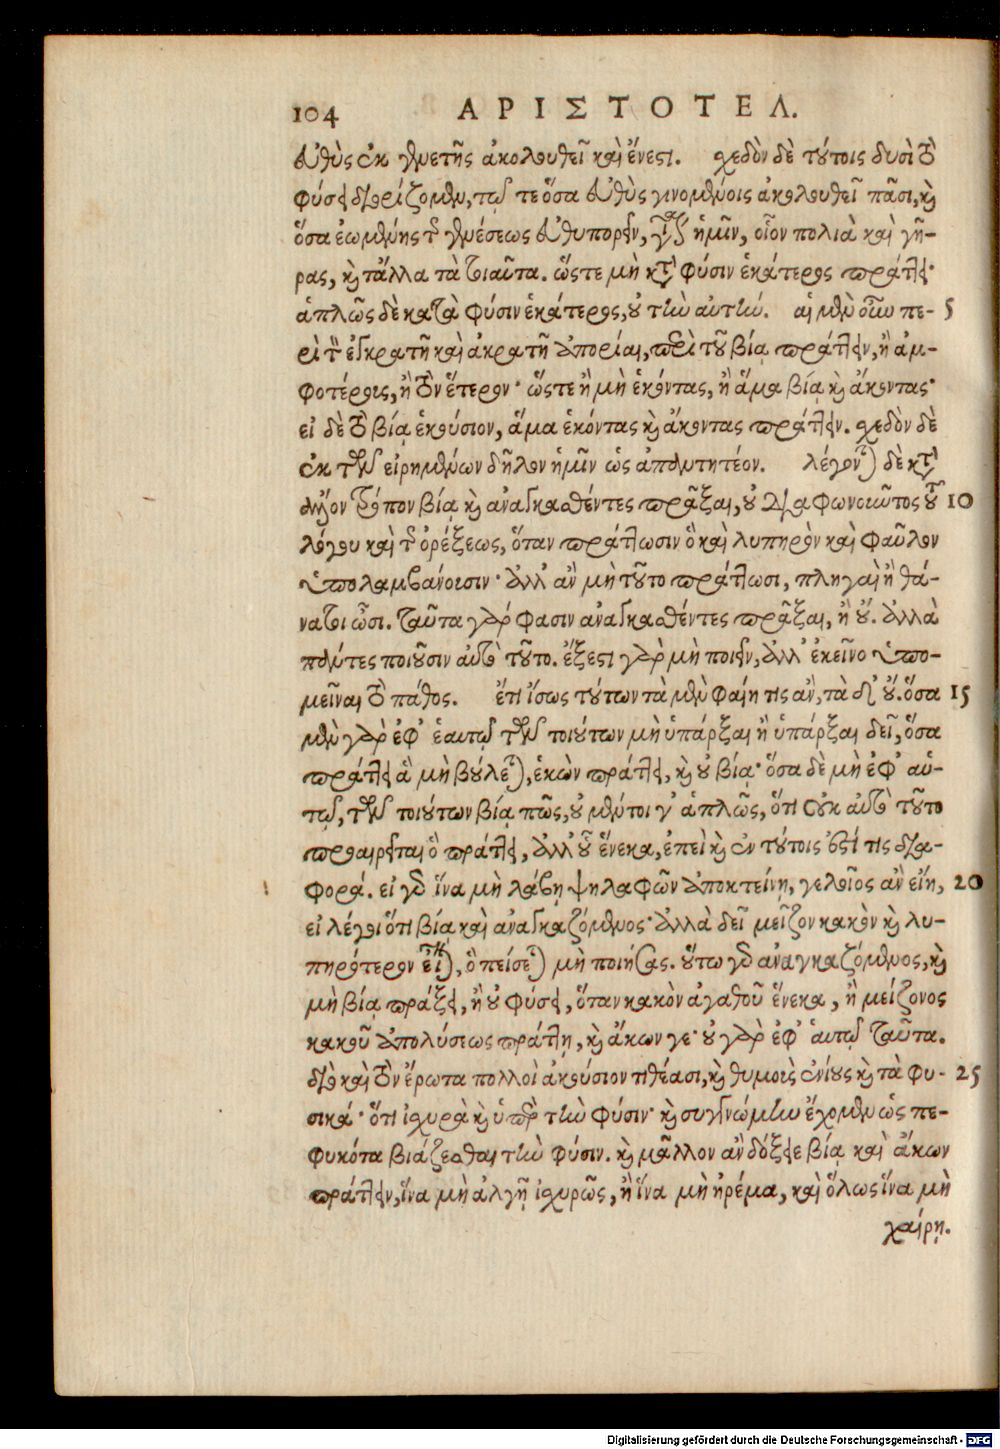 104 ΑΡΙΣΤΟΤΕΛ.
εὐθὺς ἐκ γενετῆς ἀκολουθεῖ καὶ ἔνεστι. σχεδὸν δὲ τούτοις δυσὶ τὸ
φύσει διορίζομεν, τῷ τε ὅσα εὐθὺς γινομένοις ἀκολουθεῖ πᾶσι, καὶ
ὅσα ἐωμένης τῆς γενέσεως εὐθυπορεῖν, γίνεται ἡμῖν, οἷον πολιὰ καὶ γῆ-
ρας, καὶ τἄλλα τὰ τοιαῦτα. ὥστε μὴ κατὰ φύσιν ἑκάτερος πράττει·
ἁπλῶς δὲ κατὰ φύσιν ἑκάτερος, οὐ τὴν αὐτήν. αἱ μὲν οὖν πε- 5
ρὶ τοῦ ἐγκρατῆ καὶ ἀκρατῆ ἀπορίαι, περὶ τοῦ βίᾳ πράττειν, ἢ ἀμ-
φοτέρους, ἢ τὸν ἕτερον· ὥστε ἢ μὴ ἑκόντας, ἢ ἅμα βίᾳ καὶ ἄκοντας·
εἰ δὲ τὸ βίᾳ ἑκούσιον, ἅμα ἑκόντας καὶ ἄκοντας πράττειν. σχεδὸν δὲ
ἐκ τῶν εἰρημένων δῆλον ἡμῖν ὡς ἀπαντητέον. λέγονται δὲ κατ'
ἄλλον τρόπον βίᾳ καὶ ἀναγκασθέντες πρᾶξαι, οὐ διαφωνοῦντος τοῦ 10
λόγου καὶ τῆς ὀρέξεως, ὅταν πράττωσιν ὃ καὶ λυπηρὸν καὶ φαῦλον
ὑπολαμβάνουσιν· ἀλλ' ἂν μὴ τοῦτο πράττωσι, πληγαὶ ἢ θά-
νατοι ὦσι. ταῦτα γάρ φασιν ἀναγκασθέντες πρᾶξαι, ἢ οὔ. ἀλλὰ
πάντες ποιοῦσιν αὐτὸ τοῦτο. ἔξεστι γὰρ μὴ ποιεῖν, ἀλλ' ἐκεῖνο ὑπο-
μεῖναι τὸ πάθος. ἔτι ἴσως τούτων τὰ μὲν φαίη τις ἄν, τὰ δ' οὔ. ὅσα 15
μὲν γὰρ ἐφ' ἑαυτῷ τῶν τοιούτων μὴ ὑπάρξαι ἢ ὑπάρξαι δεῖ, ὅσα
πράττει ἃ μὴ βούλεται, ἑκὼν πράττει, καὶ οὐ βίᾳ· ὅσα δὲ μὴ ἐφ' αὑ-
τῷ, τῶν τοιούτων βίᾳ πῶς, οὐ μέντοι γ' ἁπλῶς, ὅτι οὐκ αὐτὸ τοῦτο
προαιρεῖται ὃ πράττει, ἀλλ' οὗ ἕνεκα, ἐπεὶ καὶ ἐν τούτοις ἐστί τις δια-
φορά. εἰ γὰρ ἵνα μὴ λάβῃ ψηλαφῶν ἀποκτείνῃ, γελοῖος ἂν εἴη, 20
εἰ λέγοι ὅτι βίᾳ καὶ ἀναγκαζόμενος· ἀλλὰ δεῖ μεῖζον κακὸν καὶ λυ-
πηρότερον εἶναι, ὃ πείσεται μὴ ποιήσας. οὕτω γὰρ ἀναγκαζόμενος, καὶ
μὴ βίᾳ πράξει, ἢ οὐ φύσει, ὅταν κακὸν ἀγαθοῦ ἕνεκα, ἢ μείζονος
κακοῦ ἀπολύσεως πράττῃ, καὶ ἄκων γε· οὐ γὰρ ἐφ' αὑτῷ ταῦτα.
διὸ καὶ τὸν ἔρωτα πολλοὶ ἀκούσιον τιθέασι, καὶ θυμοὺς ἐνίους καὶ τὰ φυ- 25
σικά· ὅτι ἰσχυρὰ καὶ ὑπὲρ τὴν φύσιν· καὶ συγγνώμην ἔχομεν ὡς πε-
φυκότα βιάζεσθαι τὴν φύσιν. καὶ μᾶλλον ἂν δόξειε βίᾳ καὶ ἄκων
πράττειν, ἵνα μὴ ἀλγῇ ἰσχυρῶς, ἢ ἵνα μὴ ἠρέμα, καὶ ὅλως ἵνα μὴ
χαίρῃ.
Digitalisierung gefördert durch die Deutsche Forschungsgemeinschaft - DFG